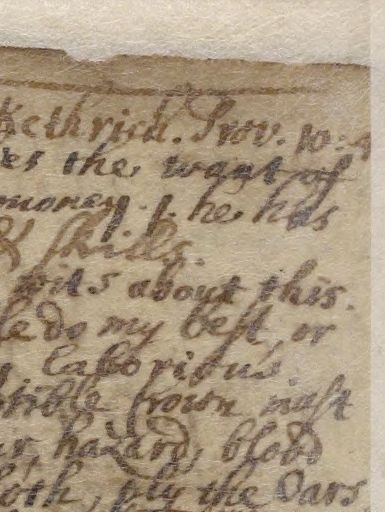 kethrich. Prov. 10:4
es the want of
money. j. he has
& skills.
wits about this.
le do my best, or
laborious.
tible crown must
ur, hazard, blood
loth, ply the Oars